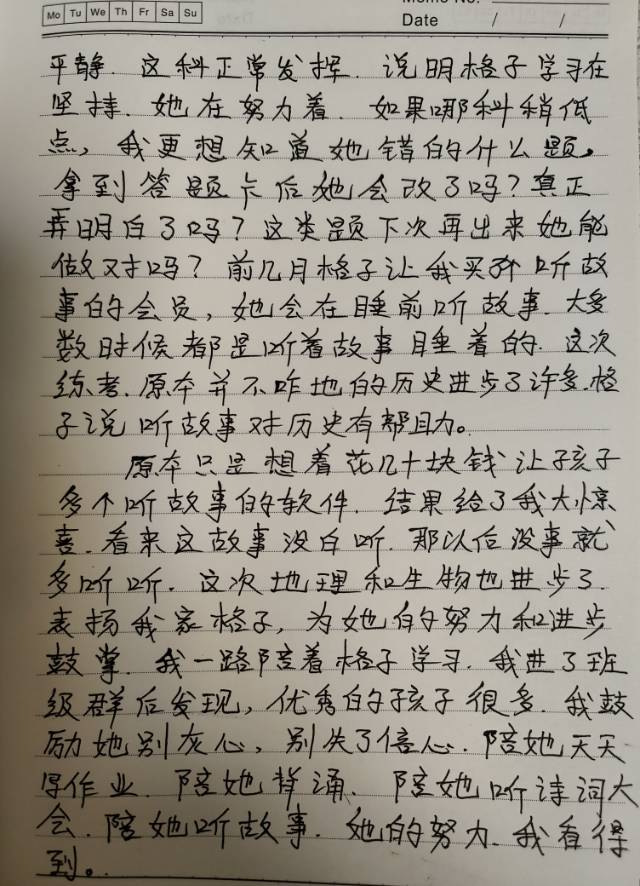 Mo Tu We Th Fr Sa Su
Memo No.
Date / /
平静.这科正常发挥.说明格子学习在
坚持.她在努力着.如果哪科稍低
点,我更想知道她错的什么题,
拿到答题卡后她会改了吗?真正
弄明白了吗?这类题下次再出来她能
做对吗?前几月格子让我买个听故
事的会员,她会在睡前听故事.大多
数时候都是听着故事睡着的.这次
练考.原本并不咋地的历史进步了许多.格
子说听故事对历史有帮助。
原本只是想着花几十块钱让孩子
多个听故事的软件.结果给了我大惊
喜.看来这故事没白听.那以后没事就
多听听.这次地理和生物也进步了.
表扬我家格子,为她的努力和进步
鼓掌.我一路陪着格子学习.我进了班
级群后发现,优秀的孩子很多.我鼓
励她别灰心,别失了信心.陪她天天
写作业.陪她背诵、陪她听诗词大
会.陪她听故事.她的努力.我看得
到。